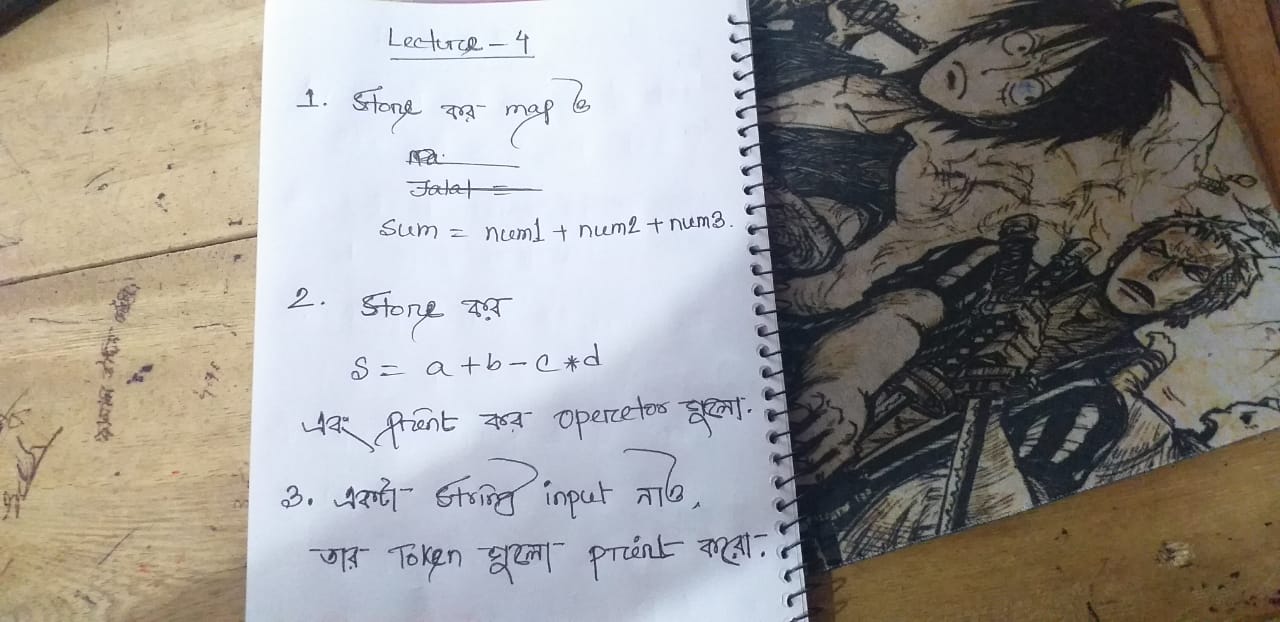 Lecture - 4
1. Store কর map এ
Jalal =
sum = num1 + num2 + num3.
2. Store কর
S = a + b - c * d
এবং print কর operetor গুলো.
3. একটা string input নাও,
তার Token গুলো print করো.